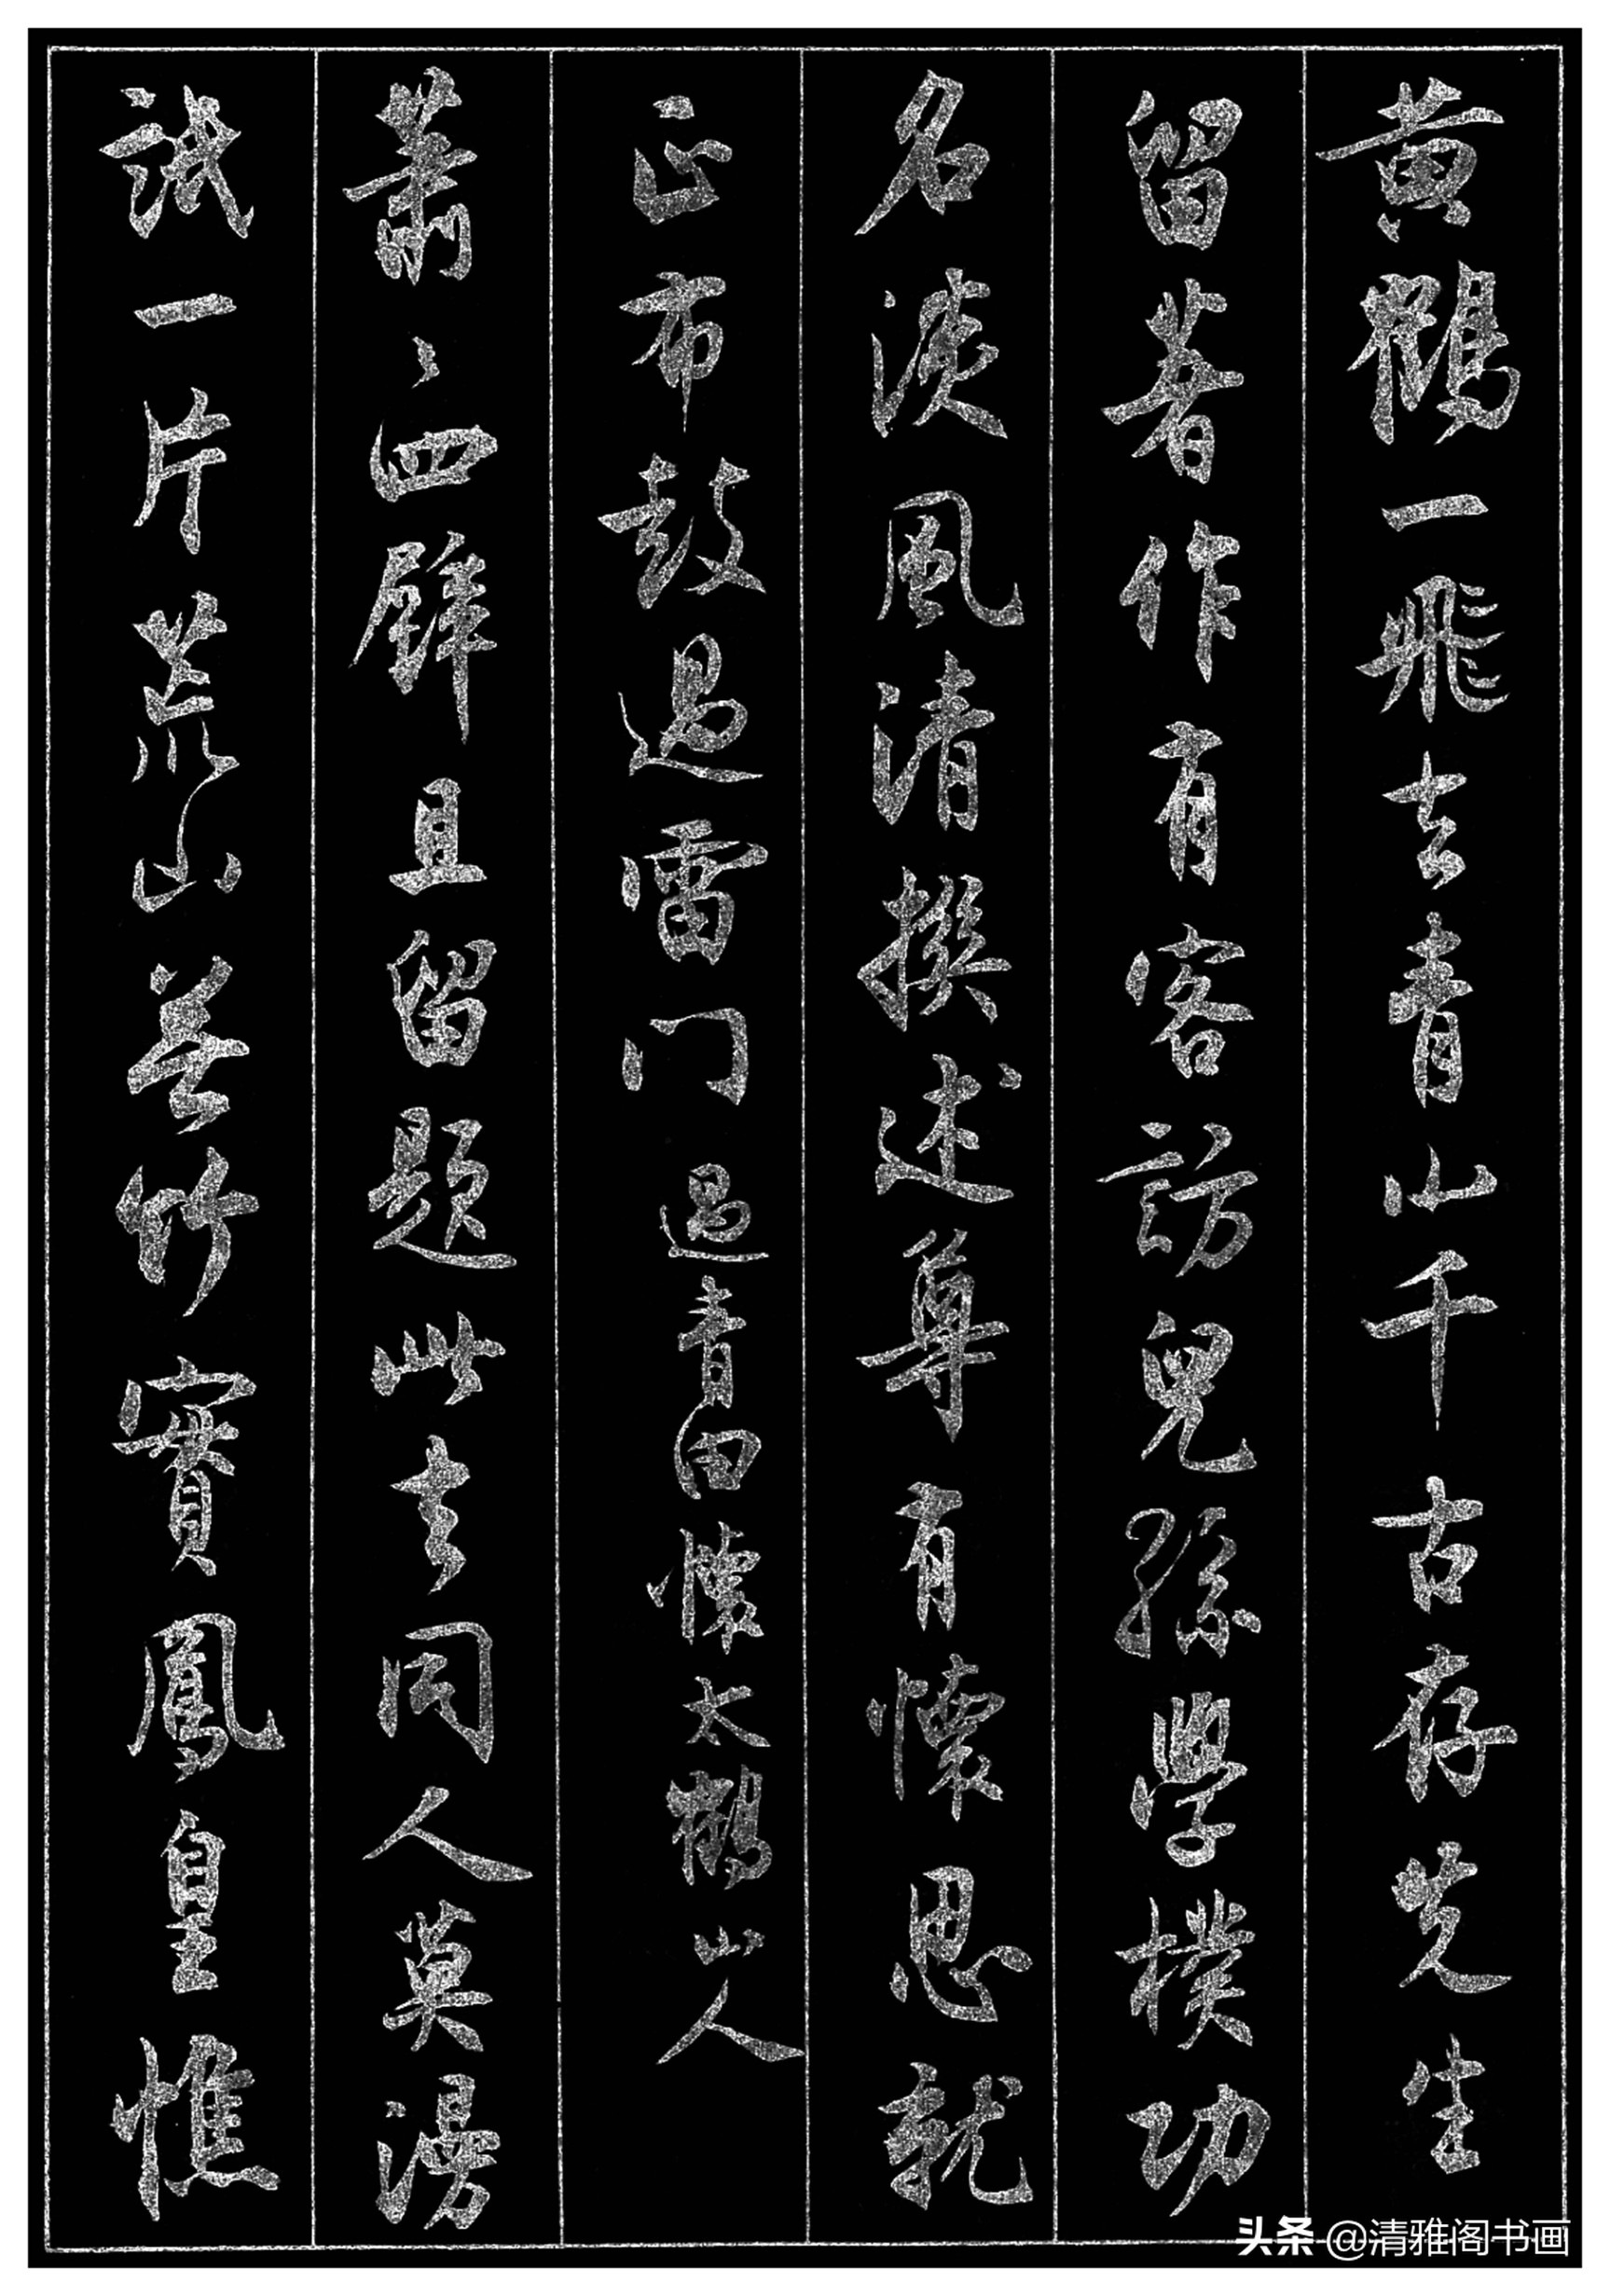 黄鶴一飛去青山千古存先生
留著作有客訪兒孫學樸功
名淡風清撰述尊有懷思就
正布鼓過雷門過青田懷太鶴山人
蕭〻四壁且留題此去同人莫漫
誚一片荒山無竹實鳳皇憔
头条@清雅阁书画